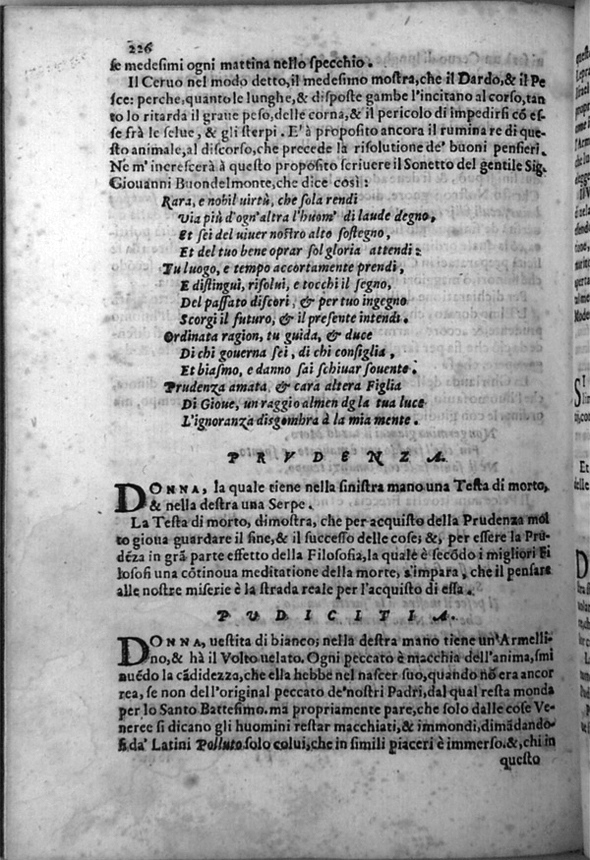 226
se medesimi ogni mattina nello specchio.
Il Ceruo nel modo detto, il medesimo mostra, che il Dardo, & il Pe
sce: perche, quanto le lunghe, & disposte gambe l'incitano al corso, tan
to lo ritarda il graue peso, delle corna, & il pericolo di impedirsi cō es-
se frà le selue, & gli sterpi. E' à proposito ancora il ruminare di que-
sto animale, al discorso, che precede la risolutione de' buoni pensieri.
Ne m' increscerà à questo proposito scriuere il Sonetto del gentile Sig.
Giouanni Buondelmonte, che dice così:
Rara, e nobil uirtù, che sola rendi
Via più d'ogn'altra l'huom' di laude degno,
Et sei del uiuer nostro alto sostegno,
Et del tuo bene oprar sol gloria attendi:
Tu luogo, e tempo accortamente prendi,
E distingui, risolui, e tocchi il segno,
Del passato discori, & per tuo ingegno
Scorgi il futuro, & il presente intendi.
Ordinata ragion, tu guida, & duce
Di chi gouerna sei, di chi consiglia,
Et biasmo, e danno sai schiuar souente.
Prudenza amata, & cara altera Figlia
Di Gioue, un raggio almen dela tua luce
L'ignoranza disgombra à la mia mente.
PRVDENZA.
DONNA, la quale tiene nella sinistra mano una Testa di morto,
& nella destra una Serpe.
La Testa di morto, dimostra, che per acquisto della Prudenza mol
to gioua guardare il fine, & il successo delle cose; &, per essere la Pru-
dēza in grā parte effetto della Filosofia, la quale è secōdo i migliori Fi
losofi una cōtinoua meditatione della morte, s'impara, che il pensare
alle nostre miserie è la strada reale per l'acquisto di essa.
PUDICITIA.
DONNA, uestita di bianco; nella destra mano tiene un'Armelli-
no, & hà il Volto uelato. Ogni peccato è macchia dell'anima, smi
nuēdo la cādidezza, che ella hebbe nel nascer suo, quando nō era ancor
rea, se non dell'original peccato de'nostri Padri, dal qual resta monda
per lo Santo Battesimo. ma propriamente pare, che solo dalle cose Ve-
neree si dicano gli huomini restar macchiati, & immondi, dimādando-
si da' Latini Polluto solo colui, che in simili piaceri è immerso. &, chi in
questo